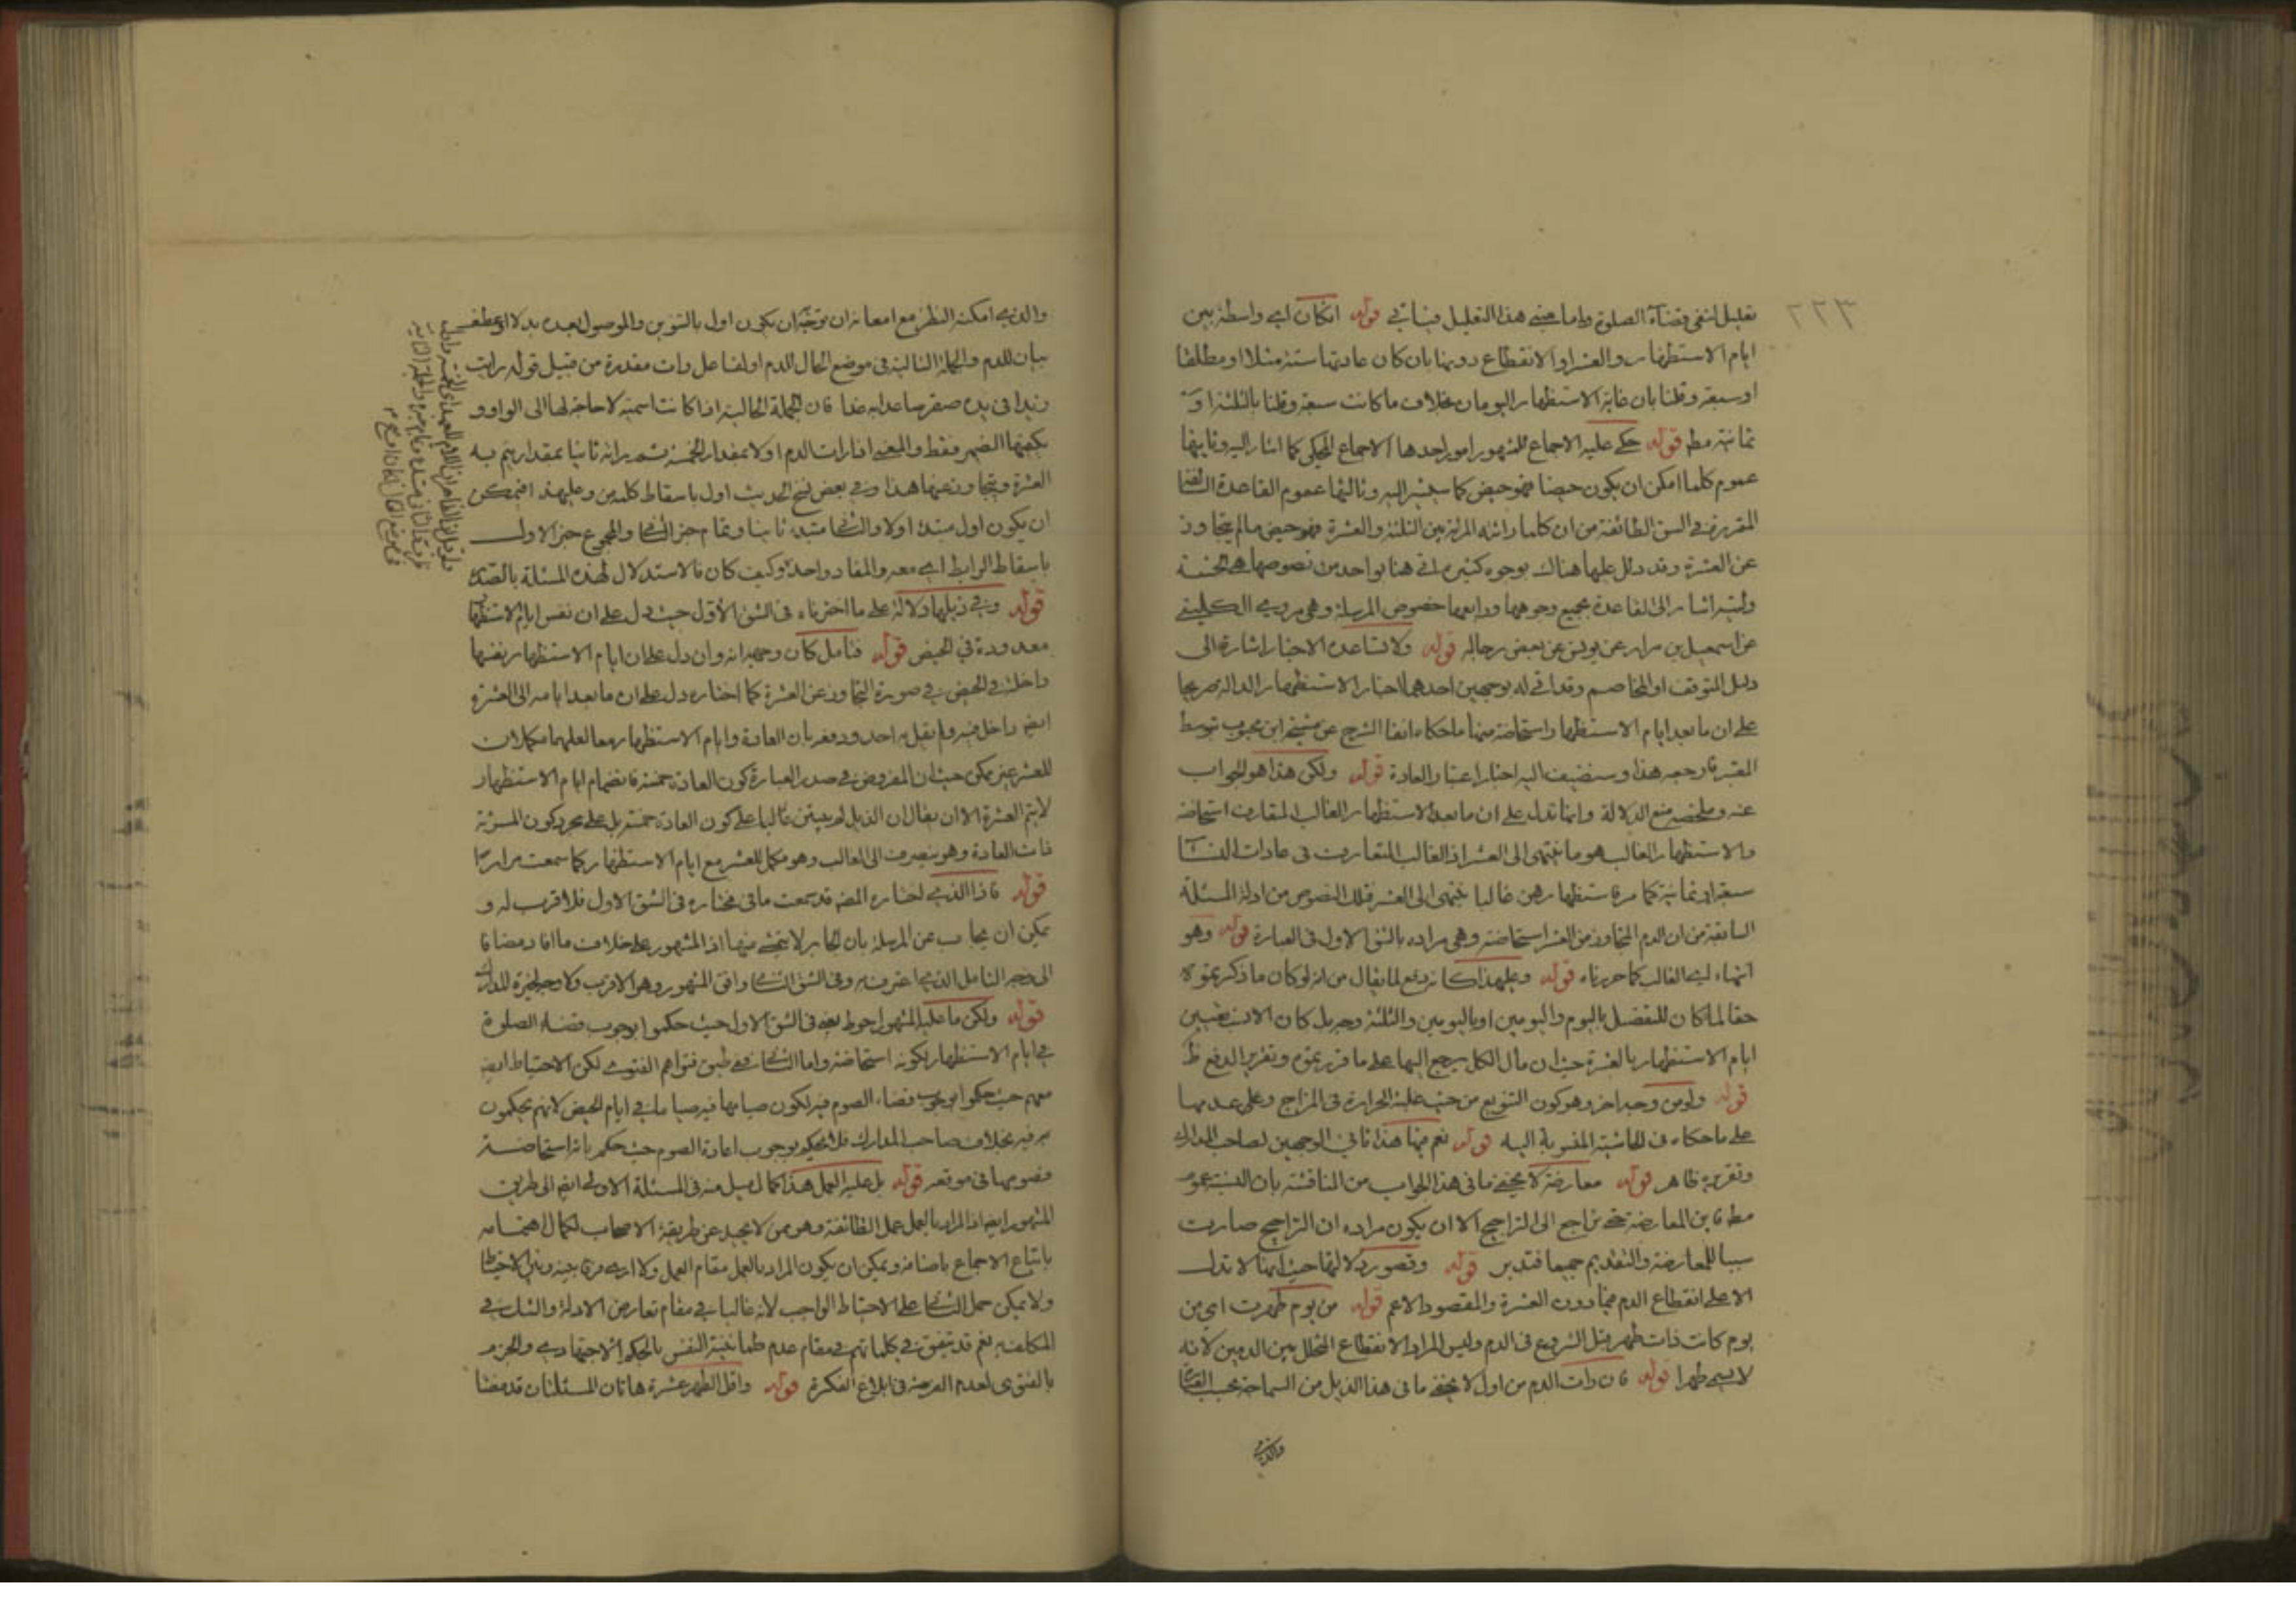 ٢٢٣
تعليل انفى قضآء الصلوة واما معنى هذا التعليل فسياتى قوله ان كان اى واسطة بين
ايام الاستظهار والعشر او الانقطاع دونها بان كان عادتها ستة مثلا او مطلقا
او سبعة وقلنا بان غاية الاستظهار اليومان بخلاف ما كانت سبعة وقلنا بالثلثة او
ثمانية مط قوله حكى عليه الاجماع للمشهور امور احدها الاجماع المحكى كما اشار اليه وثانيها
عموم كلما امكن ان يكون حيضا فهو حيض كما سيشير اليه وثالثها عموم القاعدة
المقررة فى السن الطائفة من ان كلما رائته المرئة بين الثلثة والعشرة فهو حيض ما لم يتجاوز
عن العشرة وقد دلل عليها هناك بوجوه كثيرة اتى هنا بواحد من نصوصها هى الحسنة
وليته اشار الى القاعدة بجميع وجوهها ورابعها خصوص المرسلة وهى مروية الكلينى
عن اسمعيل بن مرار عن يونس عن بعض رجاله قوله ولا تساعده الاخبار اشارة الى
دليل المتوقف او المخاصم وقد اتى له بوجهين احدهما اخبار الاستظهار الدالة صريحا
على ان ما بعد ايام الاستظهار استحاضة منها ما حكاه انفا الشرح عن مشيخة ابن محبوب توسط
فارجعه هذا وسنضيف اليه اخبار اعتبار العادة قوله ولكن هذا هو الجواب
عنه وملخصه منع الدلالة وانما تدل على ان ما بعد الاستظهار الغالب المقارن استحاضة
والاستظهار الغالب هو ما ينتهى الى العشر اذ الغالب المتعارف فى عادات النسآ
سبعة او ثمانية كما مر فاستظهارهن غالبا ينتهى الى العشر فتلك النصوص من ادلة المسئلة
السابقة من ان الدم المتجاوز من العشر استحاضة وهى مراده بالشق الاول فى العبارة قوله وهو
انتهاء اى الغالب كما حررناه قوله وعلى هذا كانه دفع لما يقال من انه لو كان ما ذكر بقوله
حقا لما كان للتفصيل باليوم واليومين او باليومين والثلثة وجه بل كان الانسب تعيين
ايام الاستظهار بالعشرة حيث ان مآل الكل يرجع اليها على ما قرره بقوله وتقرير الدفع ظ
قوله ولو من وجه اخر وهو كون التنويع من حيث غلبة الحرارة فى المزاج وعلى عدمها
على ما حكاه فى الحاشية المنسوبة اليه قوله نعم فيها هذا ثانى الوجهين لصاحب المدارك
وتقريره ظاهر قوله معارضة لا يخفى ما فى هذا الجواب من المناقشة بان النسبة عموم
مط فاين المعارضة حتى نراجع الى التراجيح الا ان يكون مراده ان التراجيح صارت
سببا للمعارضة والتقديم جميعا فتدبر قوله وقصور دلالتها حيث انها لا تدل
الا على انقطاع الدم فيما دون العشرة والمقصود الاعم قوله من يوم طهرت اى من
يوم كانت ذات طهر قبل الشروع فى الدم وليس المراد الانقطاع المتخلل بين الدمين لانه
لا يسمى طهرا قوله فان رات الدم من اول لا يخفى ما فى هذا الذيل من السماجة بحسب
والذى
والذى امكنه النظر مع امعانه ان يوجّه ان يكون اول بالتنوين والموصول بعده بدلا او عطف
بيان للدم والجملة التالية فى موضع الحال للدم او لفاعل رات مقدرة من قبيل قوله رايت
زيدا فى يده صقر صائدا به غدا فان الجملة الحالية اذا كانت اسمية لا حاجة لها الى الواو و
يكفيها الضمير فقط والمعنى اذا رات الدم اولا بمقدار الخمسة ثم راته ثانيا بمقدار يتم به
العشرة ويتجاوز عنها هذا وفى بعض نسخ الحديث اول باسقاط كلمة من وعليه هذا فيمكن
ان يكون اول مبتدء اولا والثانى مبتدء ثانيا وتمام خبر الثانى والمجموع خبر الاول
باسقاط الرابط اى معه والمفاد واحد وكيف كان فالاستدلال لهذه المسئلة بالصدر
قوله وفى ذيلها دلالة على ما اخترناه فى الشق الأول حيث دل على ان نفس ايام الاستظهار
معدودة فى الحيض قوله فتامل كان وجهه انه وان دل على ان ايام الاستظهار بنفسها
داخلة فى الحيض فى صورة التجاوز عن العشرة كما اختاره دل على ان ما بعد ايامه الى العشرة
ايضا داخل فيه ولم يقل به احد ودفعه بان العادة وايام الاستظهار معا لعلهما مكملان
للعشر غير ممكن حيث ان المفروض فى صدر العبارة كون العادة خمسة فانضمام ايام الاستظهار
لا يتم العشرة الا ان يقال ان الذيل لم يبتن غالبا على كون العادة خمسة بل على مجرد كون المرئة
ذات العادة وهو ينصرف الى الغالب وهو مكمل للعشر مع ايام الاستظهار كما سمعت مرارا
قوله فاذا الذى اختاره المصنف قد سمعت ما فى مختاره فى الشق الاول فلا قرب له و
يمكن ان يجاب عن المرسلة بان الجابر لا يتمشى منها اذ المشهور على خلاف ما افاد مضافا
الى وجه التامل الذى اعترف به وفى الشق الثانى وافق المشهور وهو الاقرب ولا وجه لخيرة المدارك
قوله ولكن ما عليه المشهور احوط يعنى فى الشق الاول حيث حكموا بوجوب قضاء الصلوة
فى ايام الاستظهار بكونه استحاضة واما الثانى فعلى طبق فتواهم الفتوى لكن الاحتياط ايضا
معهم حيث حكموا بوجوب قضاء الصوم فيه لكون صيامها فيه صياما فى ايام الحيض لانهم يحكمون
به فيه بخلاف صاحب المدارك فلا يحكم بوجوب اعادة الصوم حيث حكم بانه استحاضة
فصومها فى موقعه قوله بل عليه العمل هذا كمال ميل منه فى المسئلة الاولى ايضا الى طريق
المشهور ايضا اذ المراد بالعمل عمل الطائفة وهو ممن لا يحيد عن طريقة الاصحاب لكمال اهتمامه
باتباع الاجماع باصنافه ويمكن ان يكون المراد بالعمل مقام العمل ولا ارى فرقا بينه وبين الاحتياط
ولا يمكن حمل الثانى على الاحتياط الواجب لانه غالبا فى مقام تعارض الادلة والشك فى
المكلف به نعم قد يتفق فى كلماتهم فى مقام عدم طمانينة النفس بالحكم الاجتهادى والجزم
بالفتوى لعدم الفرصة فى ابلاغ الفكرة قوله واقل الطهر عشرة هاتان المسئلتان قد مضتا